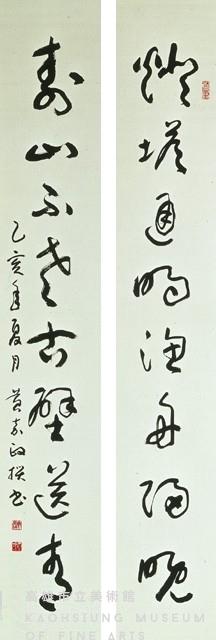 燈塔通明漁舟歸晚
壽山不老古壁送青
乙亥年夏月 黃嘉政撰書
高雄市立美術館
KAOHSIUNG MUSEUM
OF FINE ARTS